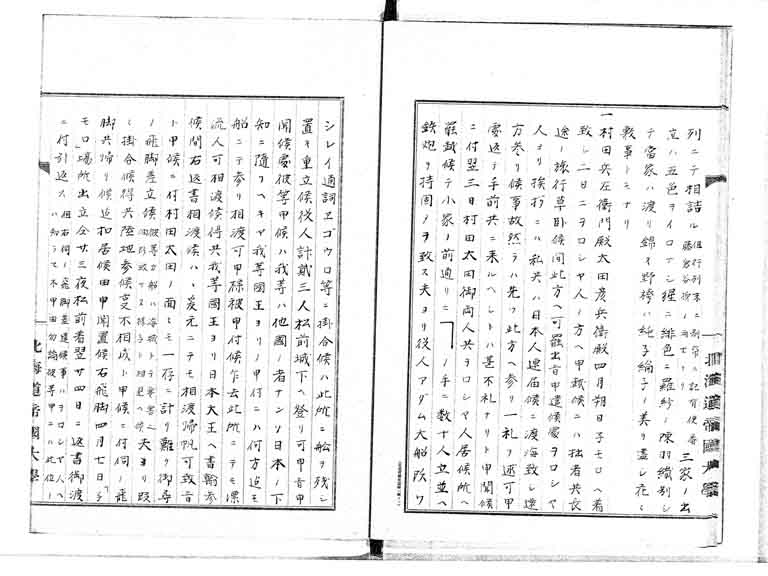 列ニテ相詰ル 三家ノ出
立ハ五色ヲイロナシ猩々緋色ニ羅紗ノ陳羽織別シ
テ當家ハ渡リ錦ノ野袴ハ純子綸子ノ美ヲ盡シ花々
敷事トモナリ
一村田兵左衛門殿太田彦兵衛殿四月朔日子モロヘ着
致シ二日ニヲロシヤ人ノ方ヘ申越候ニハ拙者共長
途ノ旅行草臥候間此方ヘ可罷出旨申遣候處ヲロシヤ
人ヨリ挨拶ニハ私共ハ日本人連届候ニ渡海致シ遠
方參リ候事故然ラハ先ツ此方ヘ參リ一礼ヲ述可申
處返テ手前共ニ来ルヘシトハ甚不礼ナリト申聞候
ニ付翌三日村田太田御両人共ヲロシヤ人居候所ヘ
罷越候テ小家ノ前通リニ ノ手ニ数十人立並ヘ
鉄炮ヲ持固メヲ致ス夫ヨリ役人アダム大船頭ワ
シレイ通詞ヱゴウロ等ニ掛合候ハ此所ニ舩ヲ残シ
置キ重立候役人計貳三人松前城下ヘ登リ可申旨申
聞候處彼等申候ハ我等ハ他國ノ者ナンソ日本ノ下
知ニ隨フヘキヤ我等國王ヨリノ申付ニハ何方迄モ
船ニテ參リ相渡可申様被申付候乍去此所ニテモ漂
流人可相渡候得共我等國王ヨリ日本大王ヘ書翰參
候間右返書相渡候ハヽ爰元ニテモ相渡帰帆可致旨
ト申候ニ付村田太田ノ面々モ一存ニ計リ難ク御尋
ノ飛脚差立候 夫ヨリ段
々掛合候得共陸地參候㕝不相成ト申候ニ付伺ノ飛
脚共帰リ候迄扣居候由申聞置候右飛脚四月七日子
モロ場所出立仝廿三夜松前着翌廿四日ニ返書御渡
ニ付引返ス
北海道帝國大學
北海道帝國大學